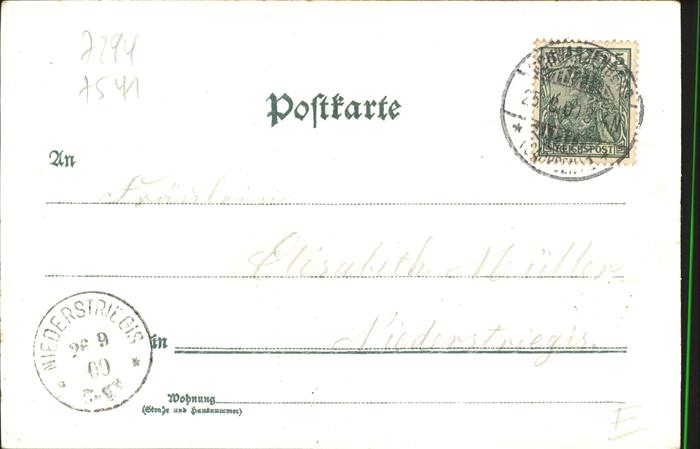 7294
7541
Postkarte
5
REICHSPOST
An
Fräulein
Elisabeth Müller
in Niederstriegis.
NIEDERSTRIEGIS
26 9
00
Wohnung
(Straße und Hausnummer)
F